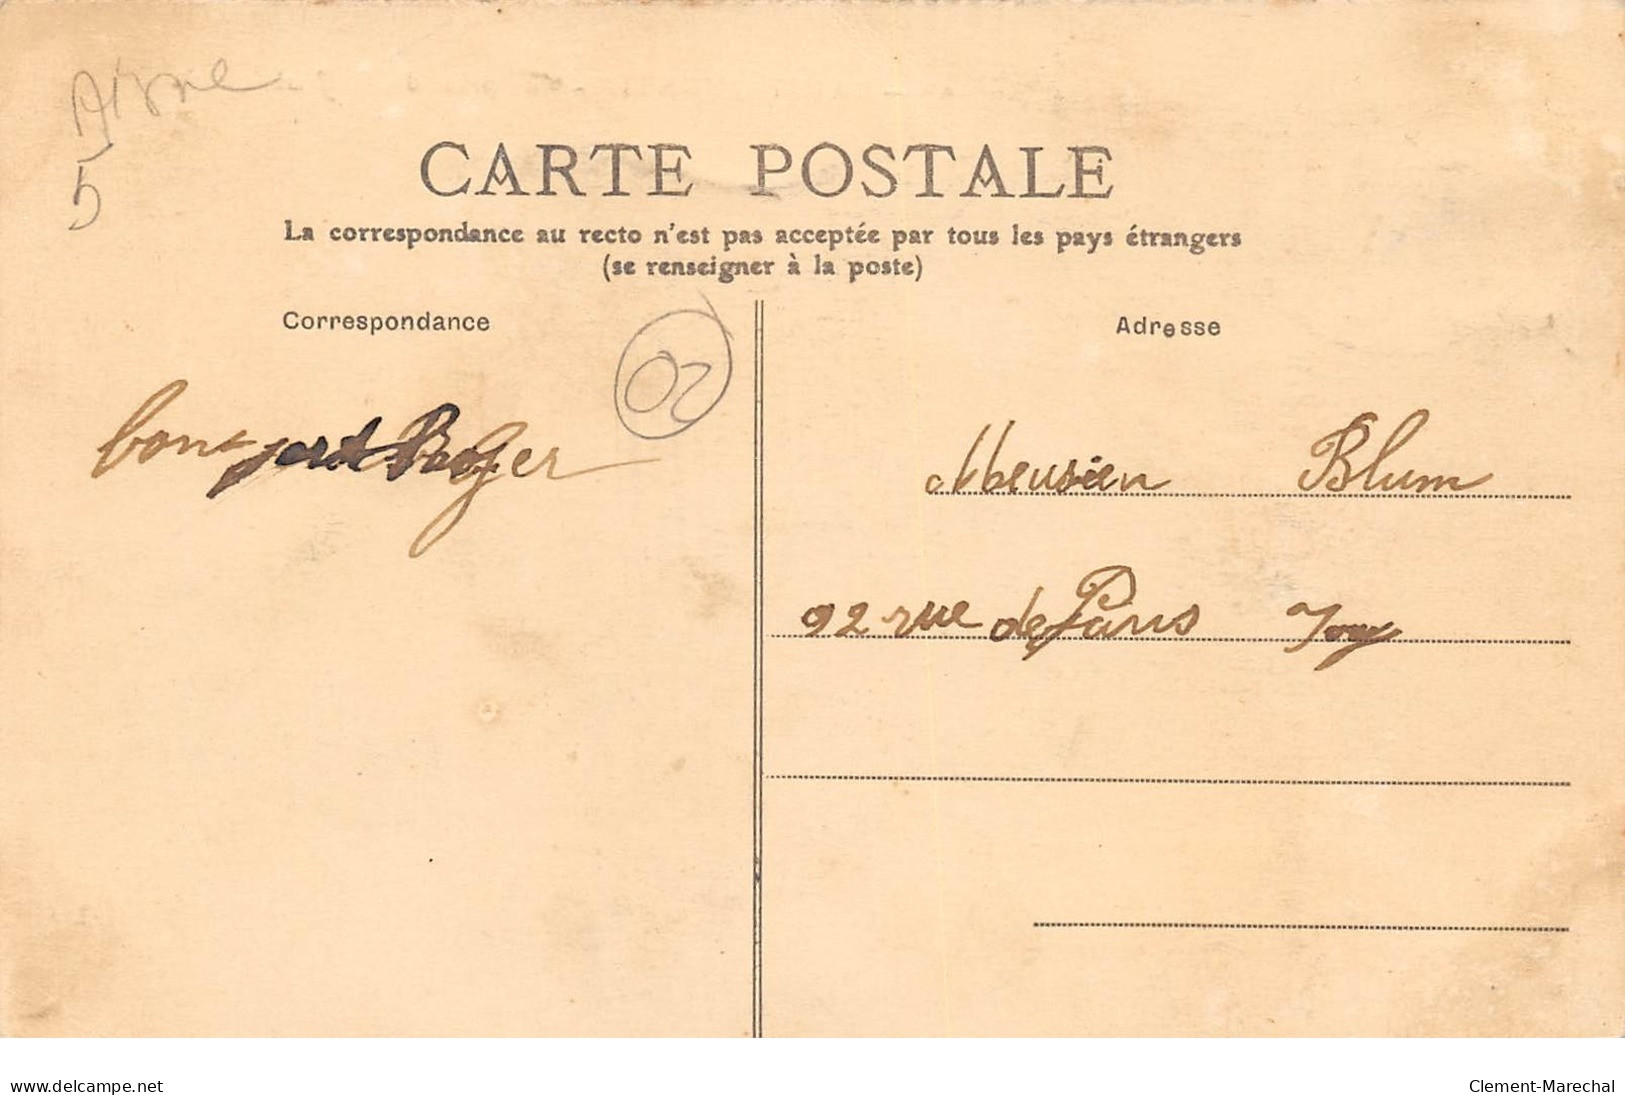 Aisne
5
CARTE POSTALE
La correspondance au recto n'est pas acceptée par tous les pays étrangers
(se renseigner à la poste)
Correspondance
02
Adresse
Blum
92 rue de Paris
www.delcampe.net
Clement-Marechal